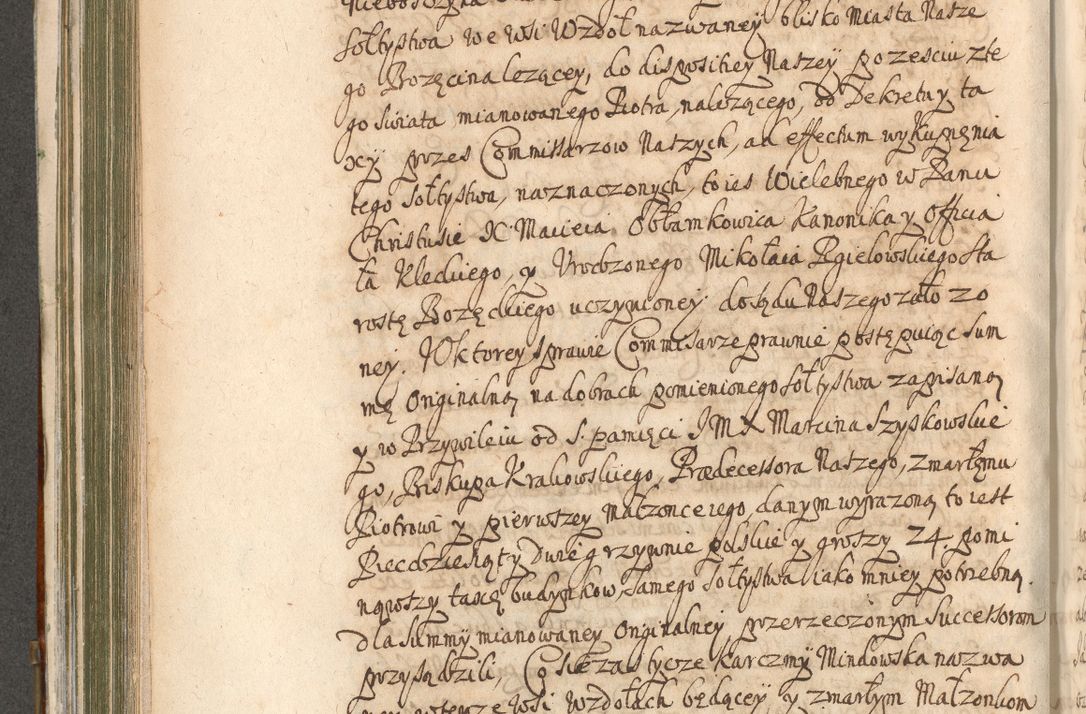 Sołtystwa we wsi Wzdoł nazwaney blisko Miasta Nasze
go Bozęcina lezącey, do dispositiey Naszey po zesciu z te
go swiata mianowanego Piotra, nalezącego, do Dekretu y ta
xy przes Commissarzow Naszych, ad effectum wykupięnia
tego Sołtystwa, naznaczonych, to ies Wielebnego w Panu
Christusie X Macieia Obłamkowica Kanonika y Officia
ła Kleckiego, y Vrodzonego Mikołaia Pgielowskiego Sta
rostę Bozęckiego uczynioney do sądu Naszego
ney. W ktorey sprawie Commisarze prawnie postępuiąc Sum
mę Originalną na dobrach pomienionego Sołtystwa zapisaną
y w Przywileiu od S. pamięci J M X Marcina Szyskowskie
go, Biskupa Krakowskiego, Prædecessora Naszego, zmarłęmu
Piotrowi y pierwszey małzonce iego danym wyrazoną to iest
Piecdziesiąt y dwie grzywnie polskie y groszy 24 pomi
nąwszy taxę budynkow samego Sołtystwa iako mniey potrzebną.
Dla Summy mianowaney Originalney przerzeczonym Successorom
przysądzili, Co sie zas tycze Karczmy Mindowska nazwa
ney teyze wsi Wzdołach będącey y zmarłym Małzonkom